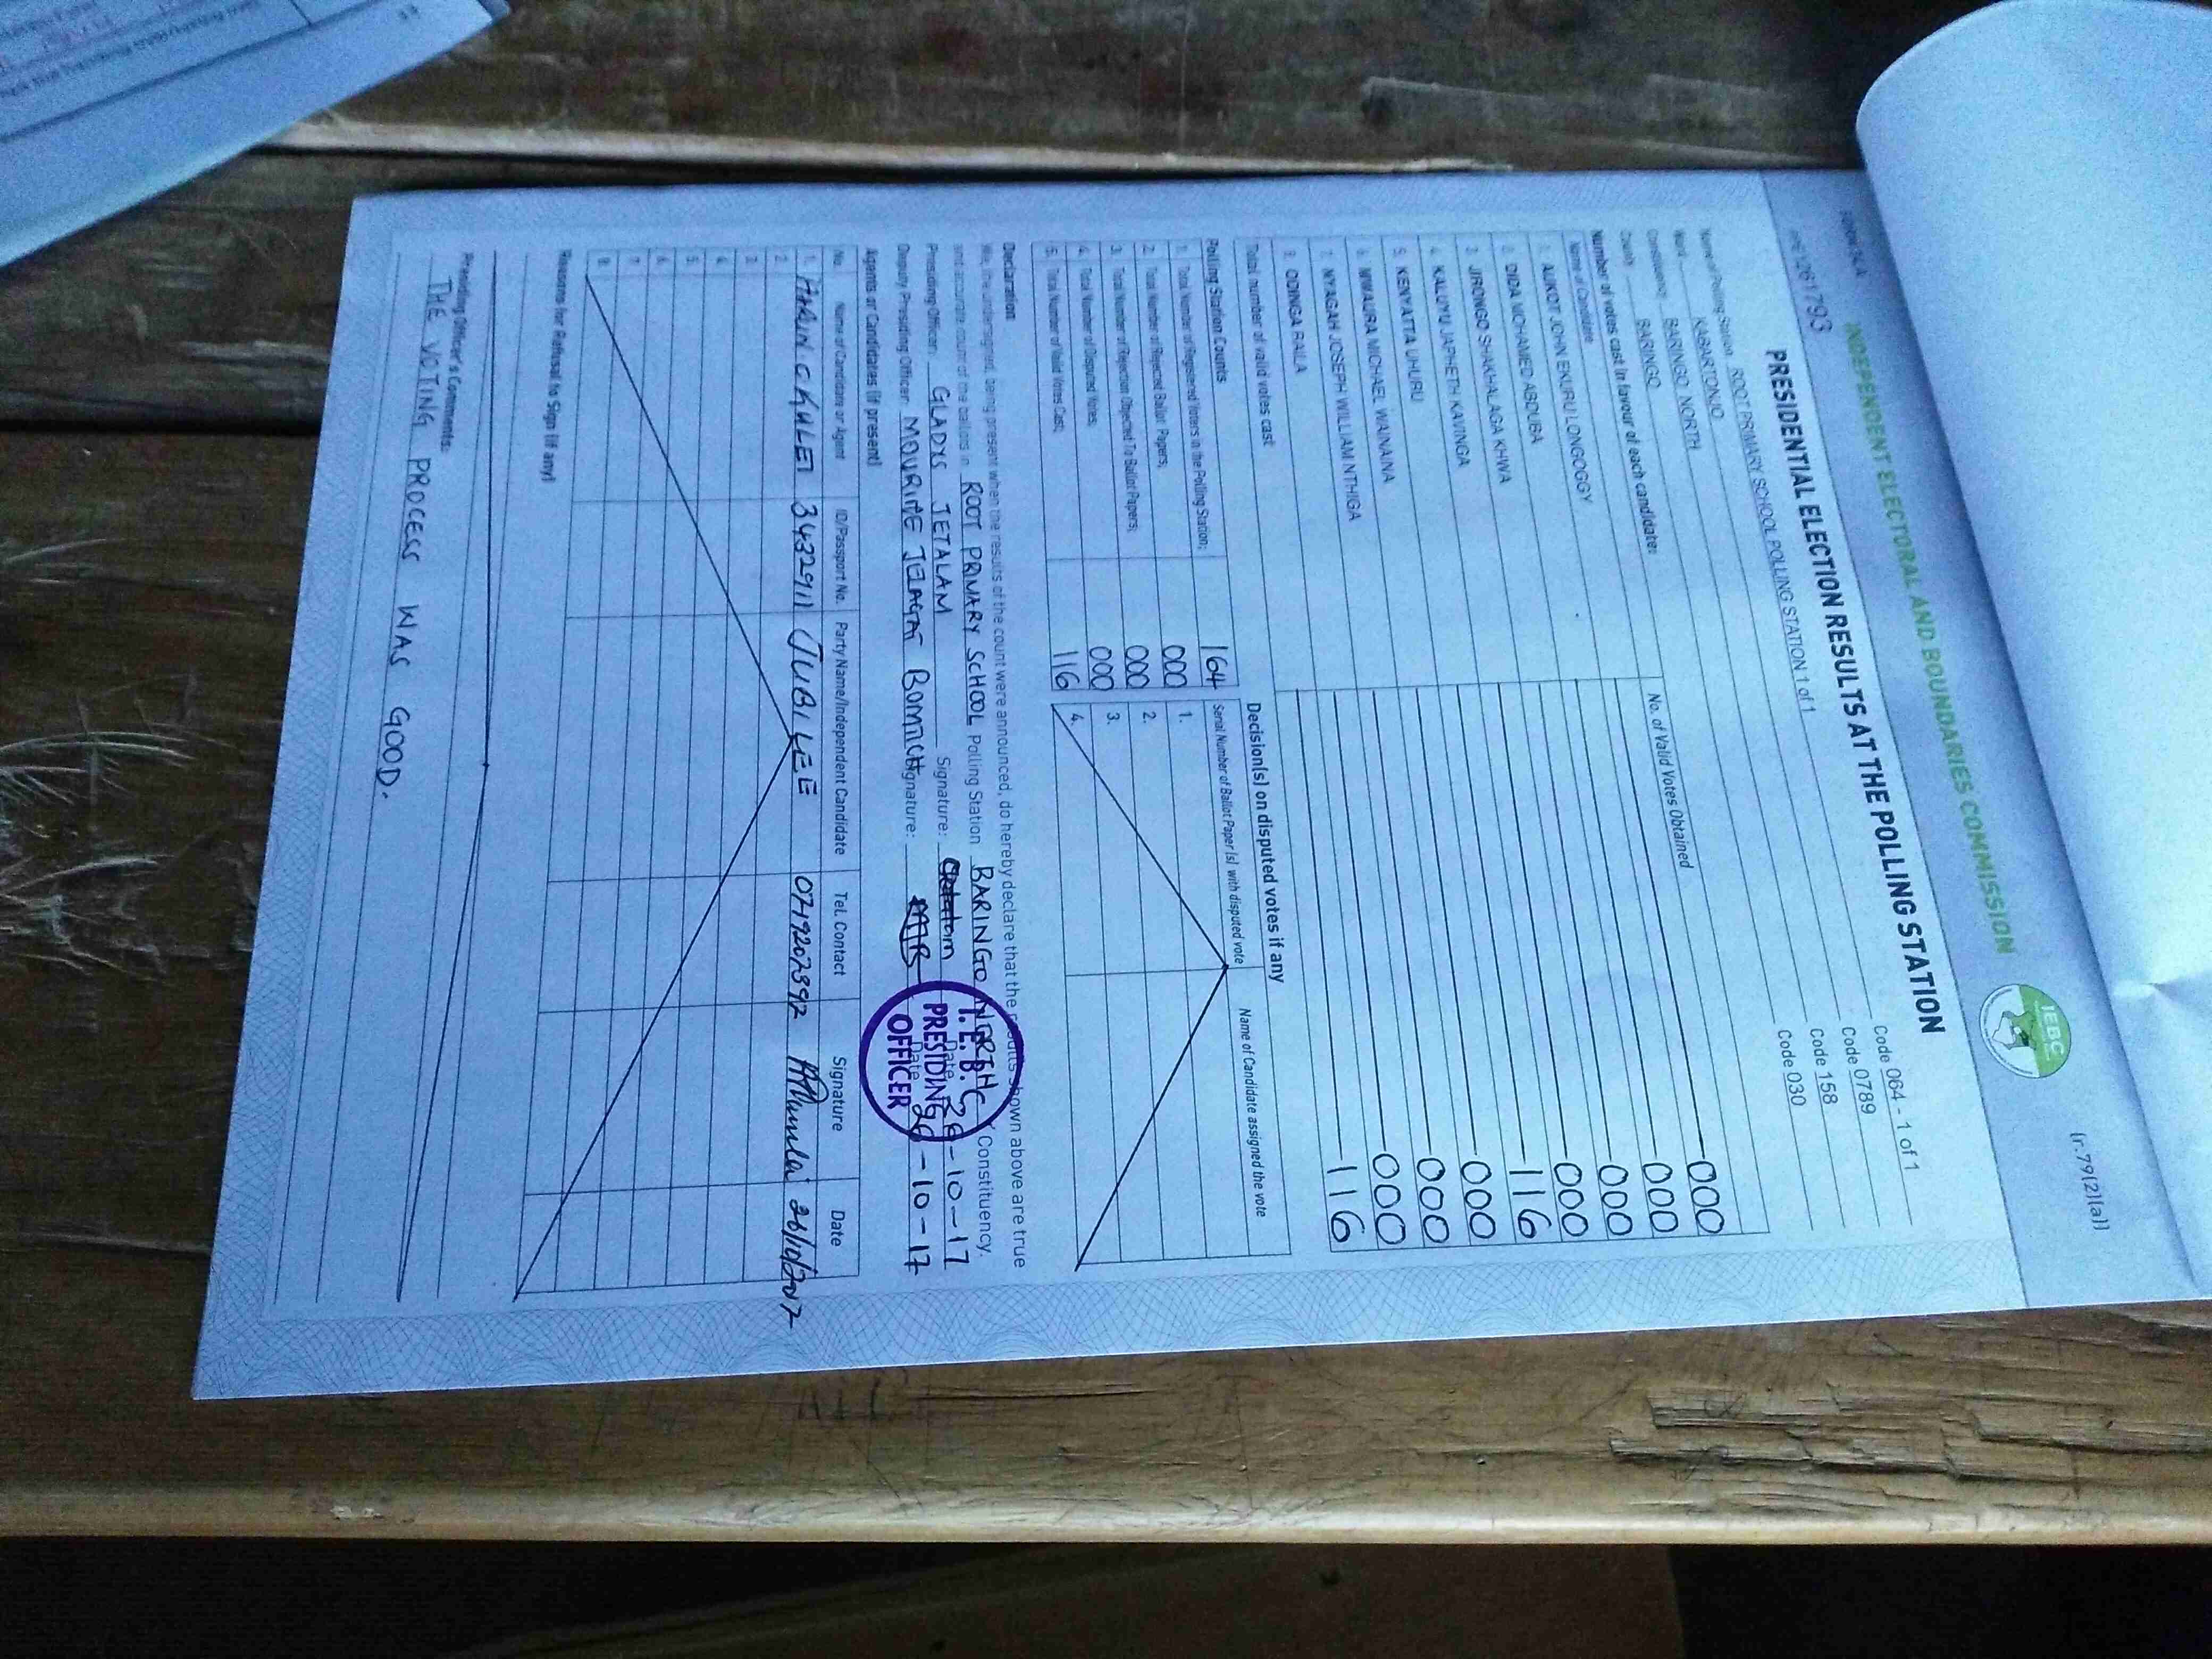 (r.79(2)(a))
IEBC
INDEPENDENT ELECTORAL AND BOUNDARIES COMMISSION
FORM 34A
PRESIDENTIAL ELECTION RESULTS AT THE POLLING STATION
Name of Polling Station ROOT PRIMARY SCHOOL POLLING STATION 1 of 1 Code 064 - 1 of 1
Ward KABARTONJO Code 0789
Constituency BARINGO NORTH Code 158
County BARINGO Code 030
Number of votes cast in favour of each candidate:
Name of Candidate No. of Valid Votes Obtained
1. AUKOT JOHN EKURU LONGOGGY 000
2. DIDA MOHAMED ABDUBA 000
3. JIRONGO SHAKHALAGA KHWA 000
4. KALUYU JAPHETH KAVINGA 000
5. KENYATTA UHURU 116
6. MWAURA MICHAEL WAINAINA 000
7. NYAGAH JOSEPH WILLIAM NTHIGA 000
8. ODINGA RAILA 000
Total number of valid votes cast 116
Polling Station Counts
1. Total Number of Registered Voters in the Polling Station; 164
2. Total Number of Rejected Ballot Papers; 000
3. Total Number of Rejection Objected To Ballot Papers; 000
4. Total Number of Disputed Votes; 000
5. Total Number of Valid Votes Cast; 116
Decision(s) on disputed votes if any
Serial Number of Ballot Paper (s) with disputed vote Name of Candidate assigned the vote
1.
2.
3.
4.
Declaration
We, the undersigned, being present when the results of the count were announced, do hereby declare that the results shown above are true
and accurate count of the ballots in ROOT PRIMARY SCHOOL Polling Station BARINGO NORTH Constituency.
Presiding Officer: GLADYS JETALAM Signature: Date 26-10-17
Deputy Presiding Officer: Signature: Date 26-10-17
I.E.B.C
PRESIDING
OFFICER
Agents or Candidates (if present)
No. Name of Candidate or Agent ID/Passport No. Party Name/Independent Candidate Tel. Contact Signature Date
1. 3432911 JUBILEE 0719202392 26/10/2017
2.
3.
4.
5.
6.
7.
8.
Reasons for Refusal to Sign (if any)
Presiding Officer's Comments:
THE VOTING PROCESS WAS GOOD.